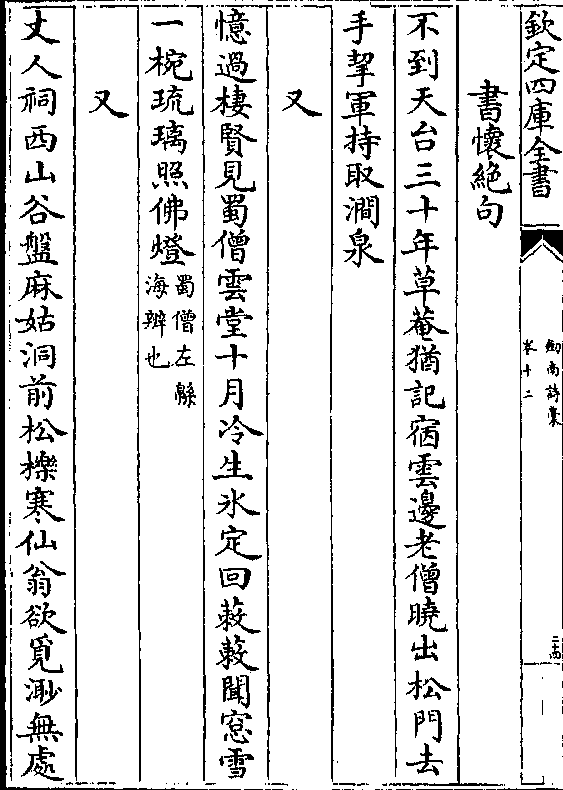 欽定四庫全書
劍南詩稾
卷十二
書懷絶句
不到天台三十年草菴猶記宿雲邊老僧曉出松門去
手挈軍持取澗泉
又
憶過棲賢見蜀僧雲堂十月冷生氷定回蔌蔌聞窓雪
一椀琉璃照佛燈蜀僧左緜海辨也
又
丈人祠西山谷盤麻姑洞前松櫟寒仙翁欲覓渺無處